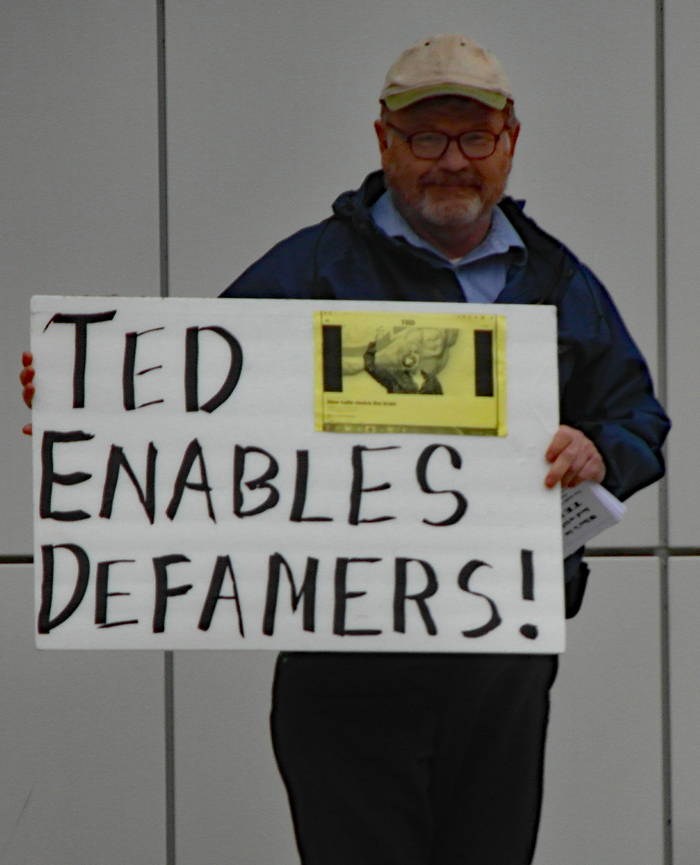 TED
TED
ENABLES
DEFAMERS!